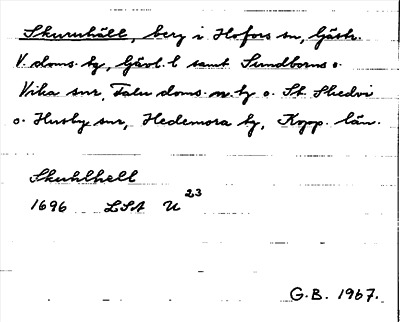 Skuruhäll, berg i Hofors sn, Gästr.
V. doms. hg, Gävl. l samt Sundborns o.
Vika snr, Falu doms. n. hg o. St. Skedvi
o. Husby snr, Hedemora hg, Kopp. län.
Skuhlhell
1696 LSA U 23
G.B. 1967.